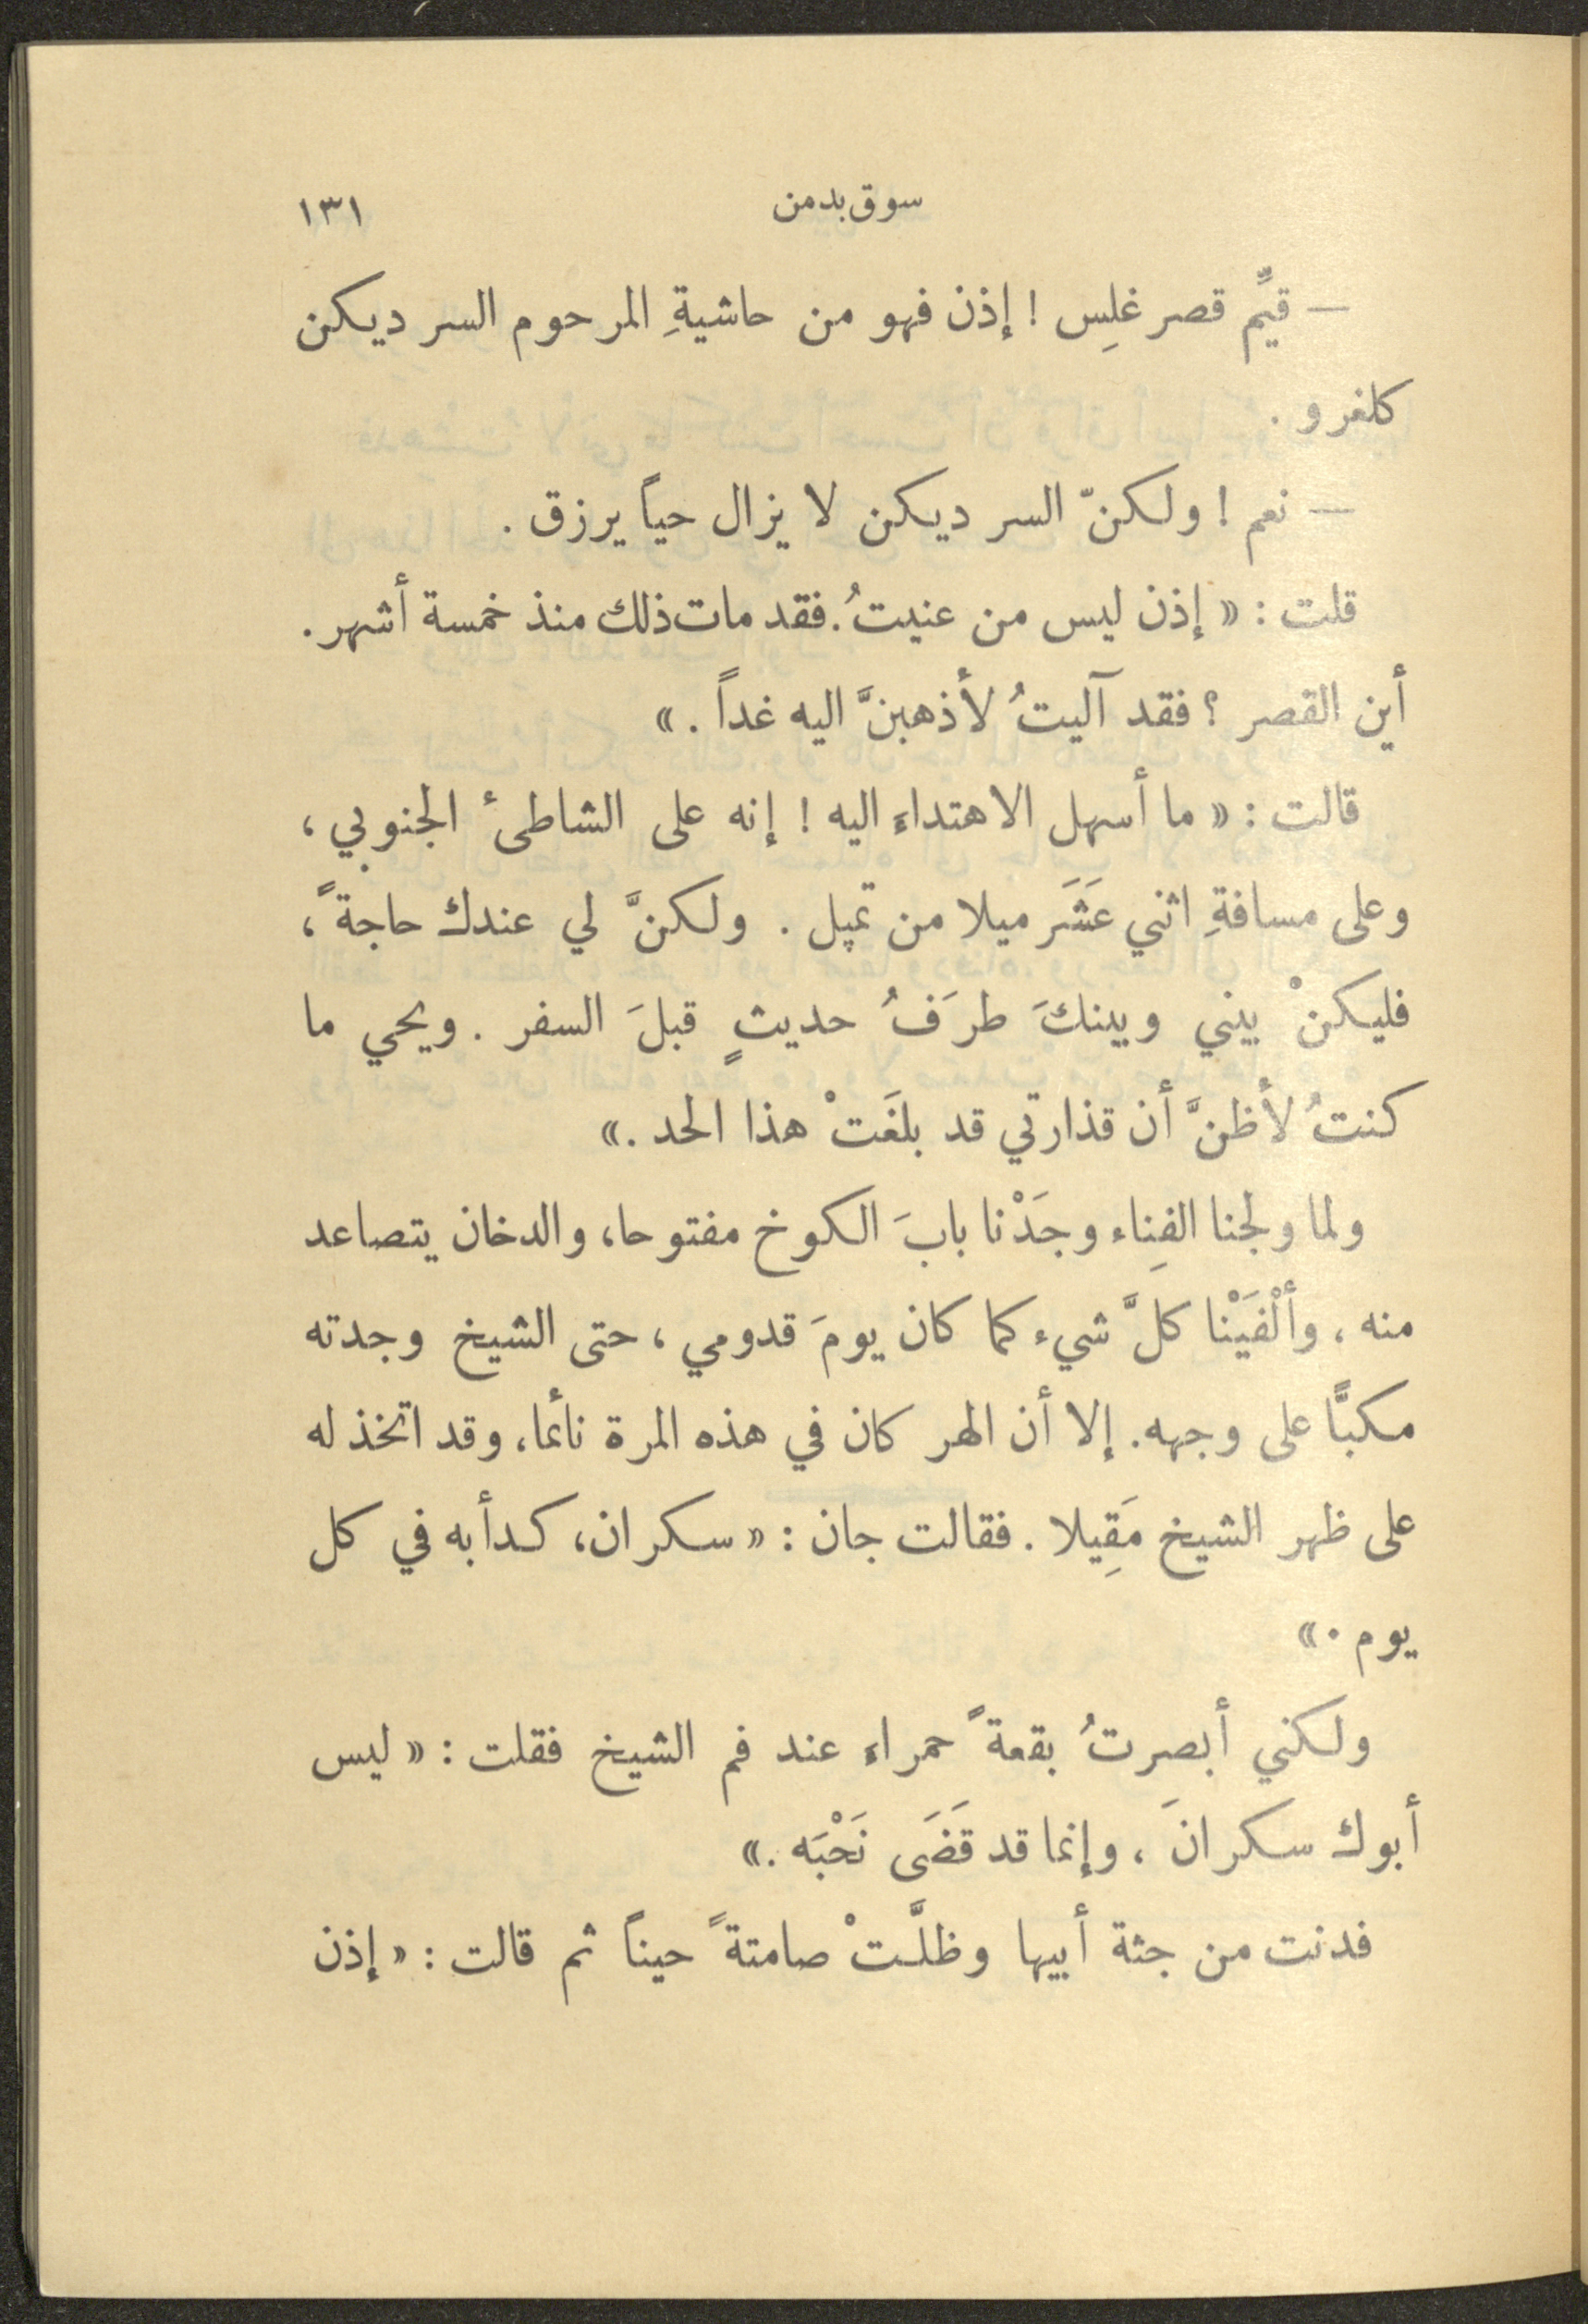 سوق بدمن ١٣١
— قيِّم قصر غلِس ! إذن فهو من حاشيةِ المرحوم السر ديكن
كلغرو .
— نعم ! ولكنّ السر ديكن لا يزال حياً يرزق .
قلت : « إذن ليس من عنيتُ . فقد مات ذلك منذ خمسة أشهر .
أين القصر ؟ فقد آليتُ لأذهبنَّ اليه غداً . »
قالت : « ما أسهل الاهتداء اليه ! إنه على الشاطىء الجنوبي ،
وعلى مسافةِ اثني عَشَر ميلا من تمپل . ولكنَّ لي عندك حاجةً ،
فليكنْ بيني وبينكَ طرَفُ حديثٍ قبلَ السفر . ويحي ما
كنتُ لأظنَّ أن قذارتي قد بلغَتْ هذا الحد . »
ولما ولجنا الفِناء وجَدْنا بابَ الكوخ مفتوحا، والدخان يتصاعد
منه ، وألْفَيْنا كلَّ شيء كما كان يومَ قدومي ، حتى الشيخ وجدته
مكبًّا على وجهه . إلا أن الهر كان في هذه المرة نائما، وقد اتخذ له
على ظهر الشيخ مَقِيلا . فقالت جان : « سكران، كدأبه في كل
يوم . »
ولكني أبصرتُ بقعةً حمراء عند فم الشيخ فقلت : « ليس
أبوك سكرانَ ، وإنما قد قَضَى نَحْبَه . »
فدنت من جثة أبيها وظلَّتْ صامتةً حيناً ثم قالت : « إذن